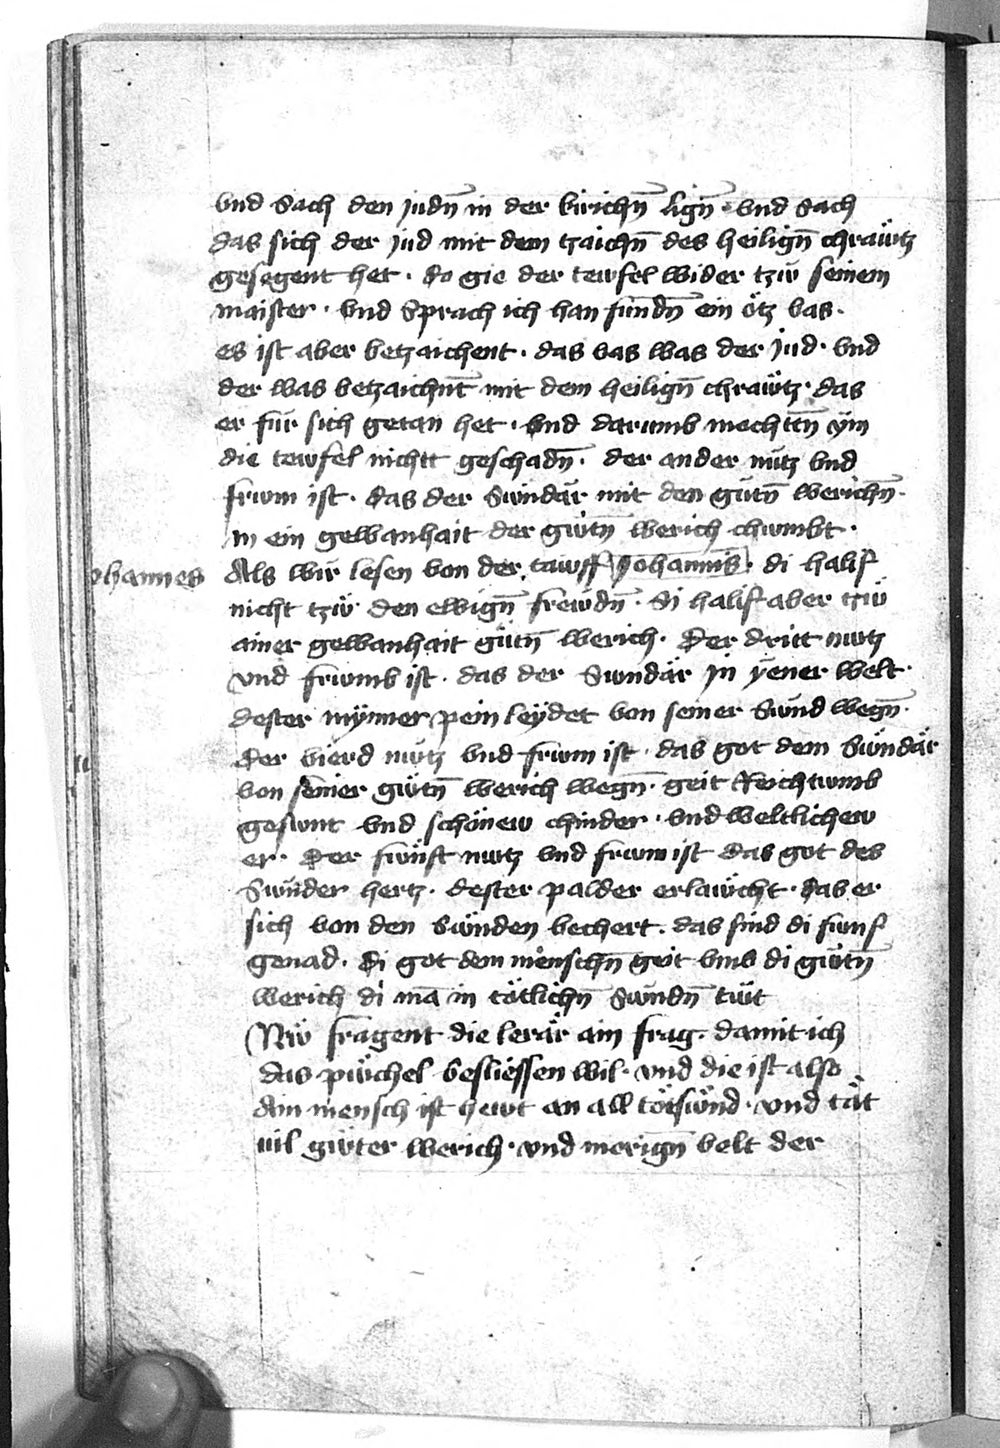 vnd sach den judn̄ in der kirichn̄ lign̄ · vnd sach
das sich der jud mit dem tzaichn̄ des heilign̄ chräwtz
gesegent het · do gie der tewfel wider tzw̄ seinem
maister · vnd sprach ich han fundn̄ ein ötz vas ·
es ist aber betzaichent · das vas was der jud · vnd
der was betzaichnt̄ mit dem heilign̄ chräwtz · das
er für sich getan het · vnd darumb mechttn̄ ym
die tewfel nichtt geschadn̄ · der ander nütz vnd
frwm ist · das der swndär mit den gütn̄ werichn̄ ·
in ein gewanhait der gẅtn̄ werich chwmbt ·
ohannes
Als wir lesen von der tawff Johannis · di halif
nicht tzẅ den ewign̄ frewdn̄ · Si halif aber tzẅ
ainer gewanhait gütn̄ werich · Der dritt nwtz
vnd frwmb ist · das der swndär jn yener welt ·
dester mynner pein leydet von seiner sünd wegn̄ ·
Der vierd nwtz vnd frwm ist · das got dem swndär
von seiner gẅtn̄ werich wegn̄ · geit Reichtwmb
geswnt vnd schönew chinder · vnd weltlichew
er · Der fwnft nwtz vnd frwm ist das got des
swnder hertz · dester palder erlawcht · das er
sich von den swnden bechert · das sind di fwnf
genad · Di got dem menschn̄ geit vmb di gẅtn̄
werich di mā in tötlichn̄ swndn̄ twt
Nẅ fragent die lerär ain frag · damit ich
das pwchel besliessen wil · vnd die ist also
Ain mensch ist hewt an all tötswnd · vnd tät
vil gẅter werich · vnd morign̄ velt der